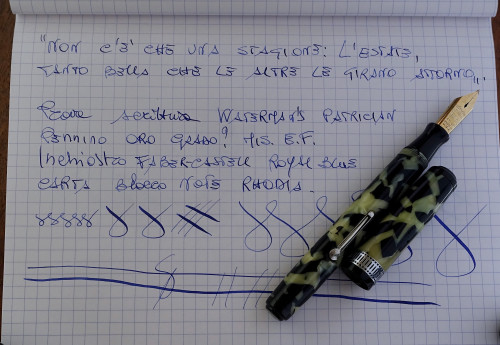 "NON C'È CHE UNA STAGIONE: L'ESTATE,
TANTO BELLA CHE LE ALTRE LE GIRANO ATTORNO„.
Prova scrittura WATERMAN'S PATRICIAN
PENNINO ORO GRADO? MIS. E.F.
Inchiostro FABER-CASTELL ROYAL BLUE
CARTA BLOCCO NOTE RHODIA.